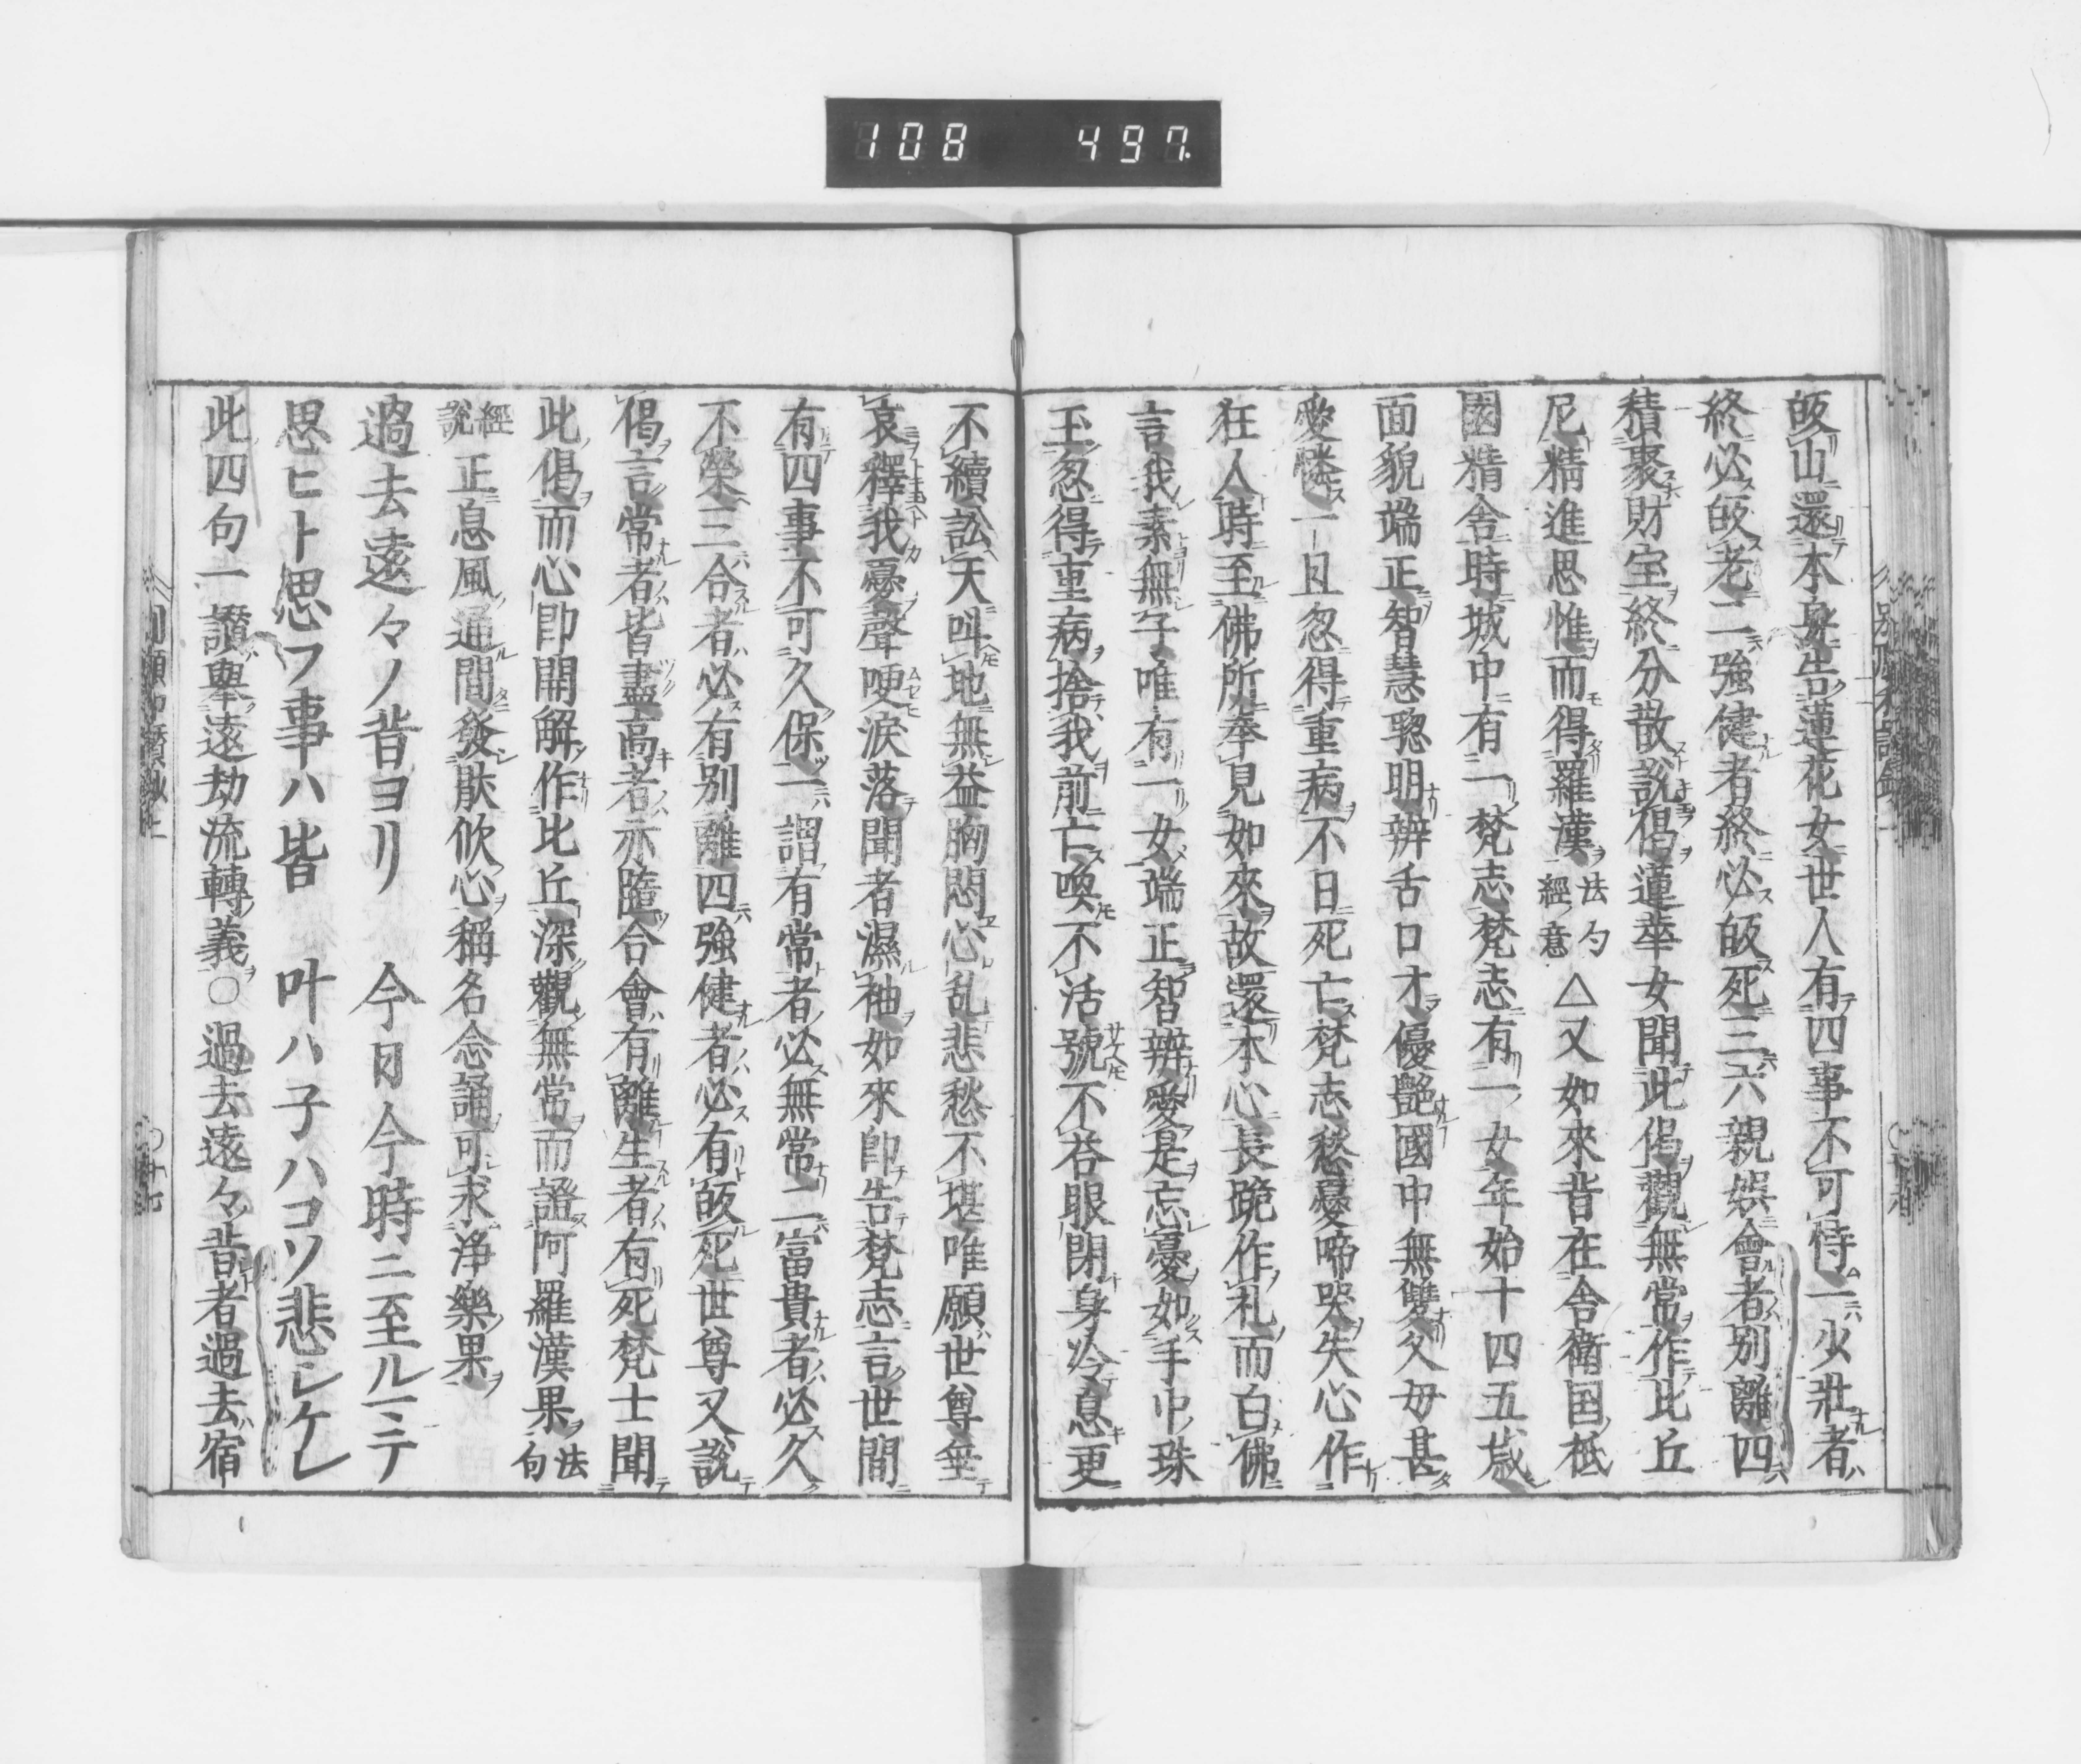 108 497.
皈山還本身告蓮花女世人有四事不可恃一少壯者
終必皈老二強健者終必皈死三六親娯會者別離四
積聚財宝終分散說偈蓮華女聞此偈觀無常作比丘
尼精進思惟而得羅漢法句經意△又如來昔在舎衛国祇
國精舎時城中有一梵志梵志有一女年始十四五歳
面貌端正智慧聡明辨舌口才優艶國中無雙父母甚
愛憐一旦忽得重病不日死亡梵志愁憂啼哭失心作
狂人時至佛所奉見如來故還本心長跪作礼而白佛
言我素無子唯有一女端正智辨愛是忘憂如手中珠
玉忽得重病捨我前亡喚不活號不荅眼閉身冷息更
不續訟天呌地無益胸悶心乱悲愁不堪唯願世尊垂
哀釋我憂聲哽淚落聞者濕袖如來即告梵志言世間
有四事不可久保一謂有常者必無常二富貴者必久
不榮三合者必有別離四強健者必有皈死世尊又說
偈言常者皆盡高者亦墮合會有離生者有死梵士聞
此偈而心即開解作比丘深觀無常而證阿羅漢果法句
經說正息風通間發猒忻心稱名念誦可求浄樂果
過去遠々ノ昔ヨリ 今日今時ニ至ルニテ
思ヒト思フ事ハ皆 叶ハ子ハコソ悲レケレ
此四句一讃擧遠劫流轉義○過去遠々昔者過去宿